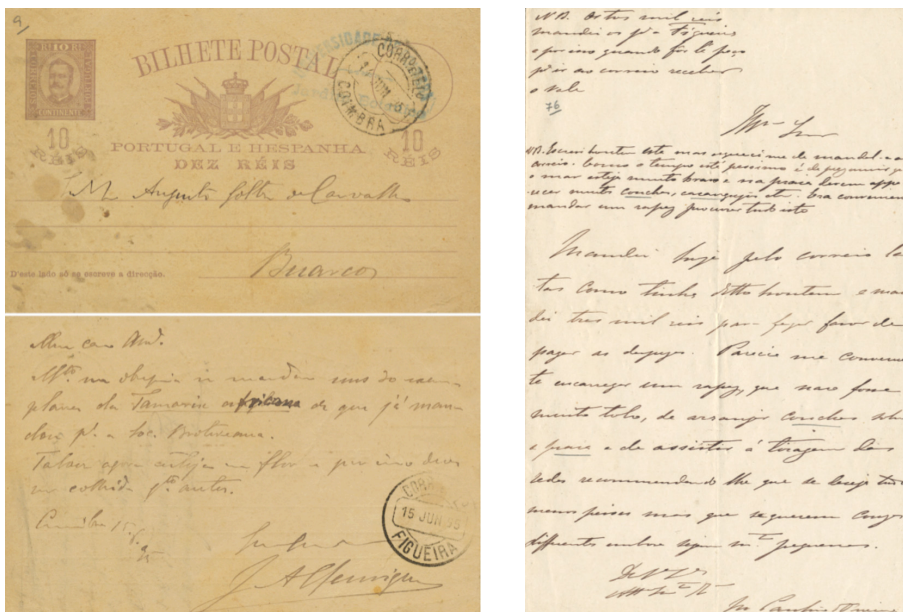 9
BILHETE POSTAL
10
RÉIS
CONTINENTE
10
RÉIS
CORREIO
14 JUN
COIMBRA
10
RÉIS
PORTUGAL E HESPANHA
DEZ RÉIS
Augusto Goltz de Carvalho
D'este lado só se escreve a direcção.
Buarcos
Meu caro Am.º
M.to me obsequia se mandar uns do exem-
plares da Tamarix africana de que já man-
dou p.ª a Soc. Broteriana.
Talvez agora esteja em flor e por isso deve
ser colhida q.to antes.
Coimbra 15
J. A. Henriques
CORREIO
15 JUN 95
FIGUEIRA
N.B. Os tres mil reis
mandei os p.ª a Figueira
e por isso quando fôr lá peço
p.ª ir ao correio receber
o vale
76
N.B. Escrevi hontem esta mas esqueci me de mandal-a ao
correio. Como o tempo está pessimo é de
o mar esteja muito bravo e na praia devem appa-
recer muitas conchas, caranguejos etc. Era conveniente
mandar um rapaz procurar tudo isto
Mandei hoje pelo correio la
tas como tinha ditto hontem e man
dei tres mil reis para fazer favor de
pagar as despezas. Parecia me convenien
te encarregar um rapaz, que não fosse
muito tolo, de arranjar conchas sobre
a praia e de assistir á tiragem das
redes recommendando lhe que
menos peixes mas que
differentes embora sejam m.to pequenos.